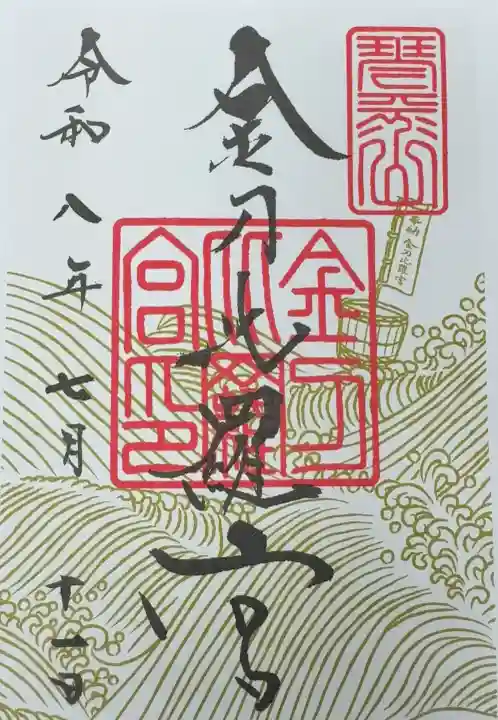 琴平山
奉納 金刀比羅宮
金刀比羅宮
金刀比羅宮印
令和八年七月十一日